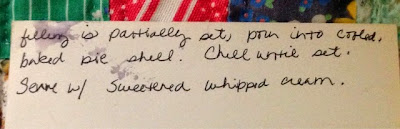 filling is partially set, pour into cooled,
baked pie shell. Chill until set.
Serve w/ sweetened whipped cream.